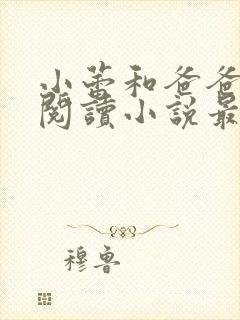 小蕾和爸爸
閱讀小說最
穆魯